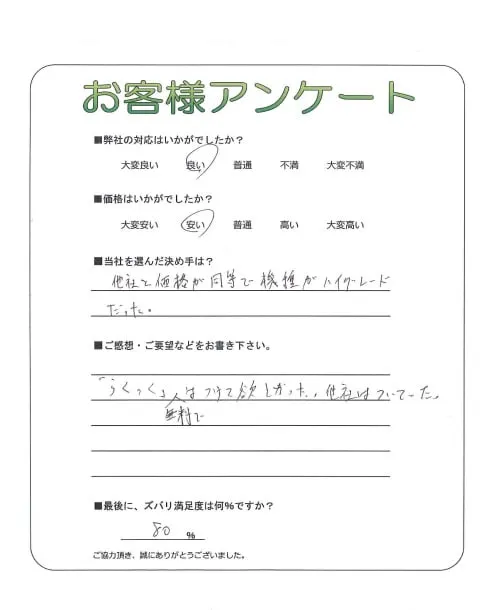 お客様アンケート
■弊社の対応はいかがでしたか?
大変良い 良い 普通 不満 大変不満
■価格はいかがでしたか?
大変安い 安い 普通 高い 大変高い
■当社を選んだ決め手は?
他社と価格が同等で機種がハイグレード
だった。
■ご感想・ご要望などをお書き下さい。
はつけて欲しかった、他社はついていた。
無料で
■最後に、ズバリ満足度は何%ですか?
80 %
ご協力頂き、誠にありがとうございました。